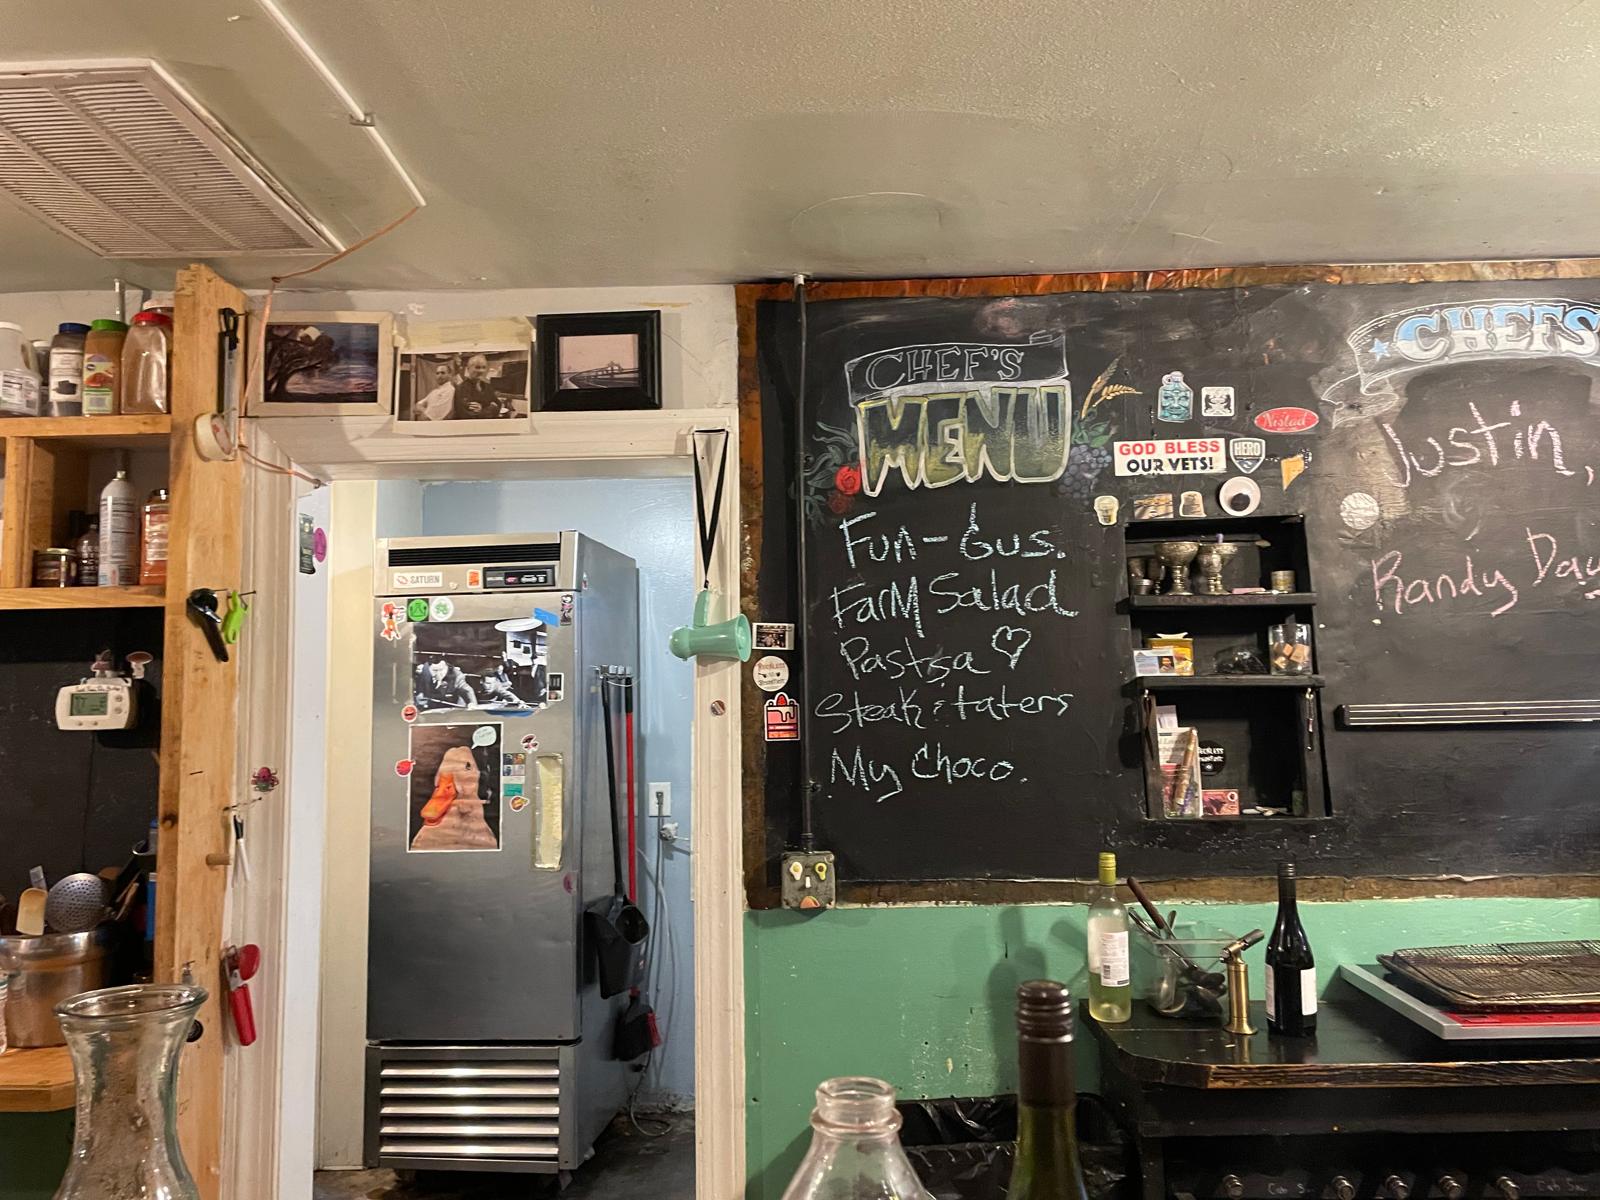 CHEF'S
MENU
Fun-Gus.
Farm Salad
Pastsa
Steak & taters
My Choco.
GOD BLESS
OUR VETS!
HERO
CHEFS
Justin,
Randy Day
SATURN